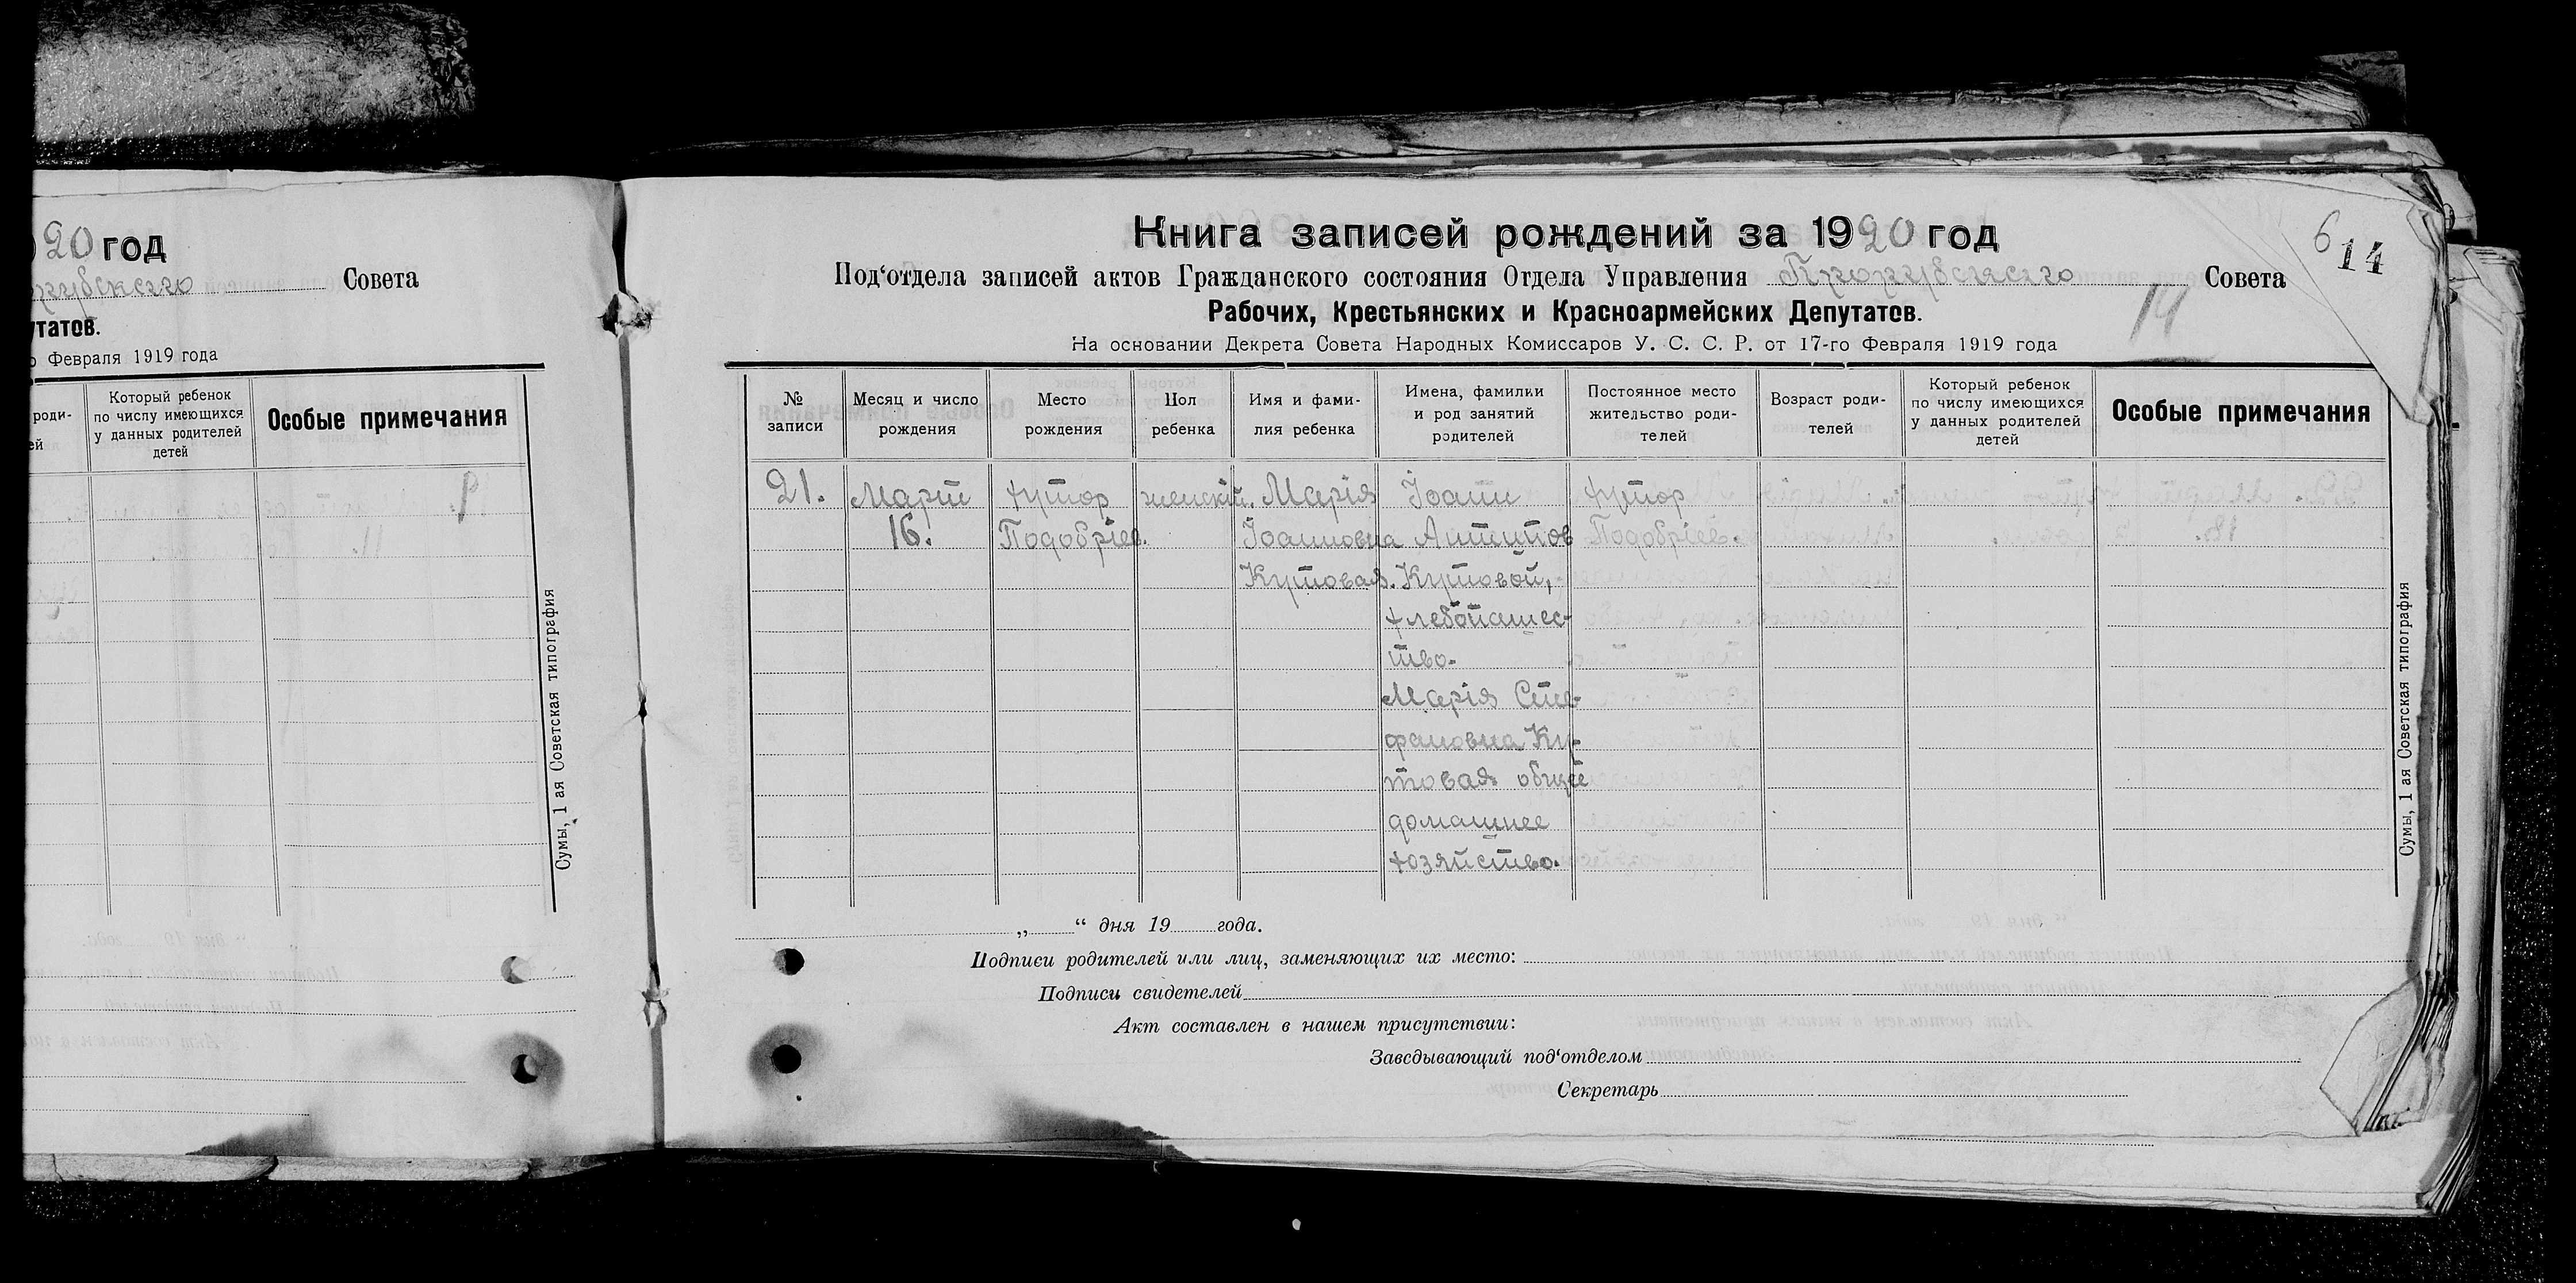 20 год
Совета
утатов.
о Февраля 1919 года
роди-
ей
Который ребенок
по числу имеющихся
у данных родителей
детей
Особые примечания
Сумы, 1 ая Советская типография
6
14
14
Книга записей рождений за 1920 год
Под‘отдела записей актов Гражданского состояния Отдела Управления Совета
Рабочих, Крестьянских и Красноармейских Депутатов.
На основании Декрета Совета Народных Комиссаров У. С. С. Р. от 17-го Февраля 1919 года
№
записи
Месяц и число
рождения
Место
рождения
Пол
ребенка
Имя и фами-
лия ребенка
Имена, фамилии
и род занятий
родителей
Постоянное место
жительство роди-
телей
Возраст роди-
телей
Который ребенок
по числу имеющихся
у данных родителей
детей
Особые примечания
21.
Март
16.
хутор
Подобріев.
женскій.
Марія
Іоанновна
Кутовая.
Іоанн
Антипов
Кутовой,
хлебопашес-
тво.
Марія Сте-
фановна Ку-
товая общее
домашнее
хозяйство.
хутор
Подобріев.
„ “ дня 19 года.
Подписи родителей или лиц, заменяющих их место:
Подписи свидетелей
Акт составлен в нашем присутствии:
Заведывающий под‘отделом
Секретарь
Сумы, 1 ая Советская типография